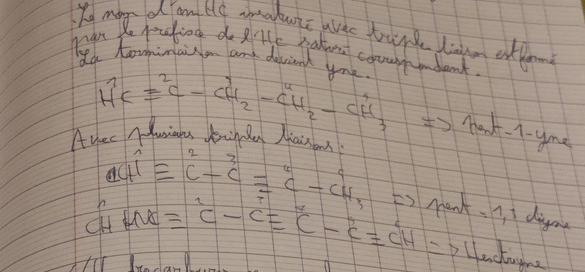 Le nom d'un HC insaturé avec triple liaison est formé
par le préfixe de l'HC saturé correspondant.
La terminaison ane devient yne.
HC ≡ C - CH2 - CH2 - CH3 => pent-1-yne
Avec plusieurs triples liaisons:
CH ≡ C - C ≡ C - CH3 => pent-1,3 diyne
CH ≡ C - C ≡ C - C ≡ CH =>